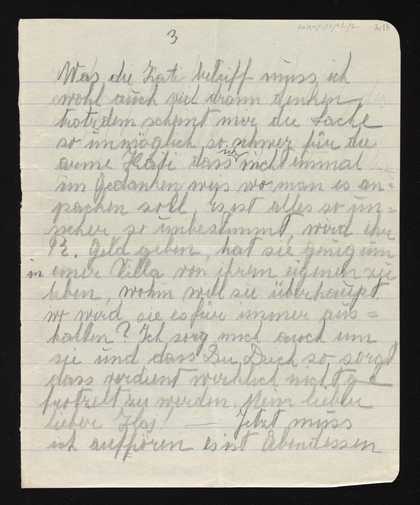 3
Was die Kati betriff muss ich
wohl auch viel daran denken
trotzdem scheint mir die Sache
so unmöglich so schwer für die
arme Kati dass ich nicht einmal
im Gedanken weis wo man es an-
pachen soll es ist alles so un-
sicher so unbestimmt, wird ihr
P. Geld geben, hat sie genug um
in einer Villa von ihrem eigenen zu
leben, wohin will sie überhaupt
wo wird sie es für immer aus-
halten? Ich sorg mich auch um
sie und dass Du Dich so sorgt
dass verdient werklich nicht ge-
trotzelt zu werden. Mein lieber
lieber — Jetzt muss
ich aufhören es ist Abendessen